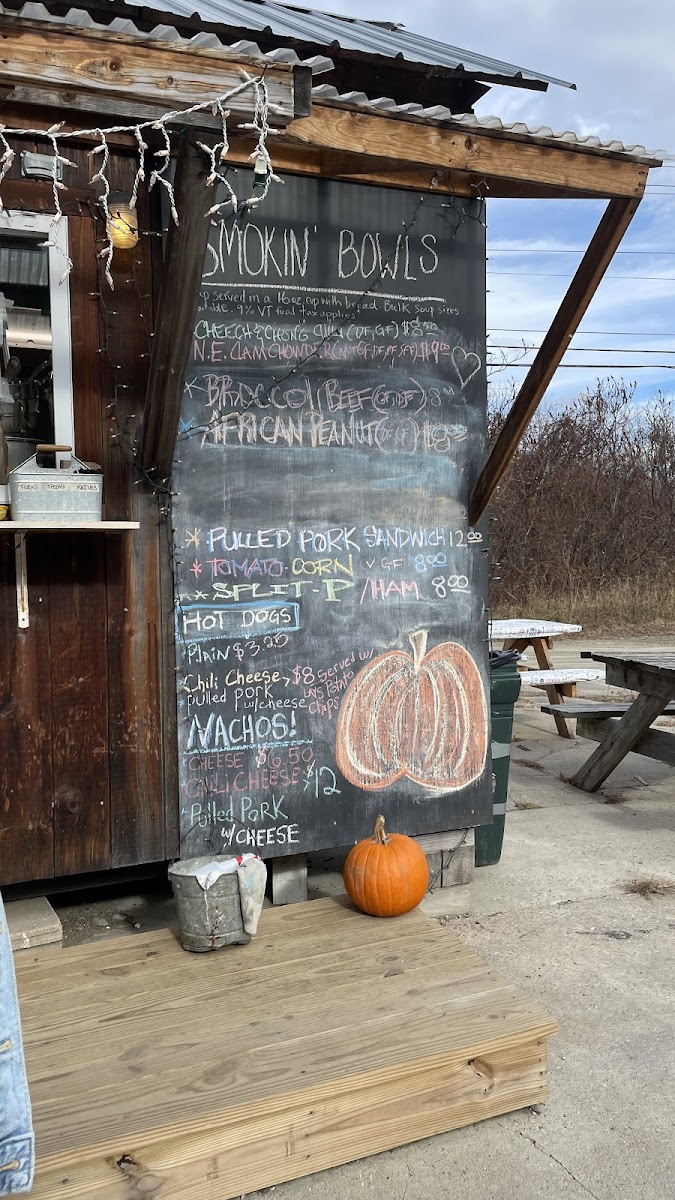 SMOKIN' BOWLS
served in a 16oz. cup with bread. Bulk soup sizes
9% VT food tax applies
CHEECH & CHONG CHILI (DF, GF) $8.00
N.E. CLAM CHOWDER $9.00
* BROCCOLI BEEF (GF, DF) 8.00
* AFRICAN PEANUT (DF, GF) $8.00
* PULLED PORK SANDWICH 12.00
* TOMATO-CORN (V GF) 8.00
* SPLIT-P/HAM 8.00
HOT DOGS
Plain $3.25
Chili Cheese > $8 Served w/
pulled pork w/cheese Potato
Chips
NACHOS!
CHEESE $6.50
CHILI CHEESE > $12
Pulled PORK
w/ CHEESE
FORKS SPOONS KNIVES